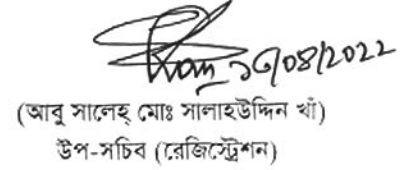 ১৩/০৪/২০২২
(আবু সালেহ্ মোঃ সালাহউদ্দিন খাঁ)
উপ-সচিব (রেজিস্ট্রেশন)